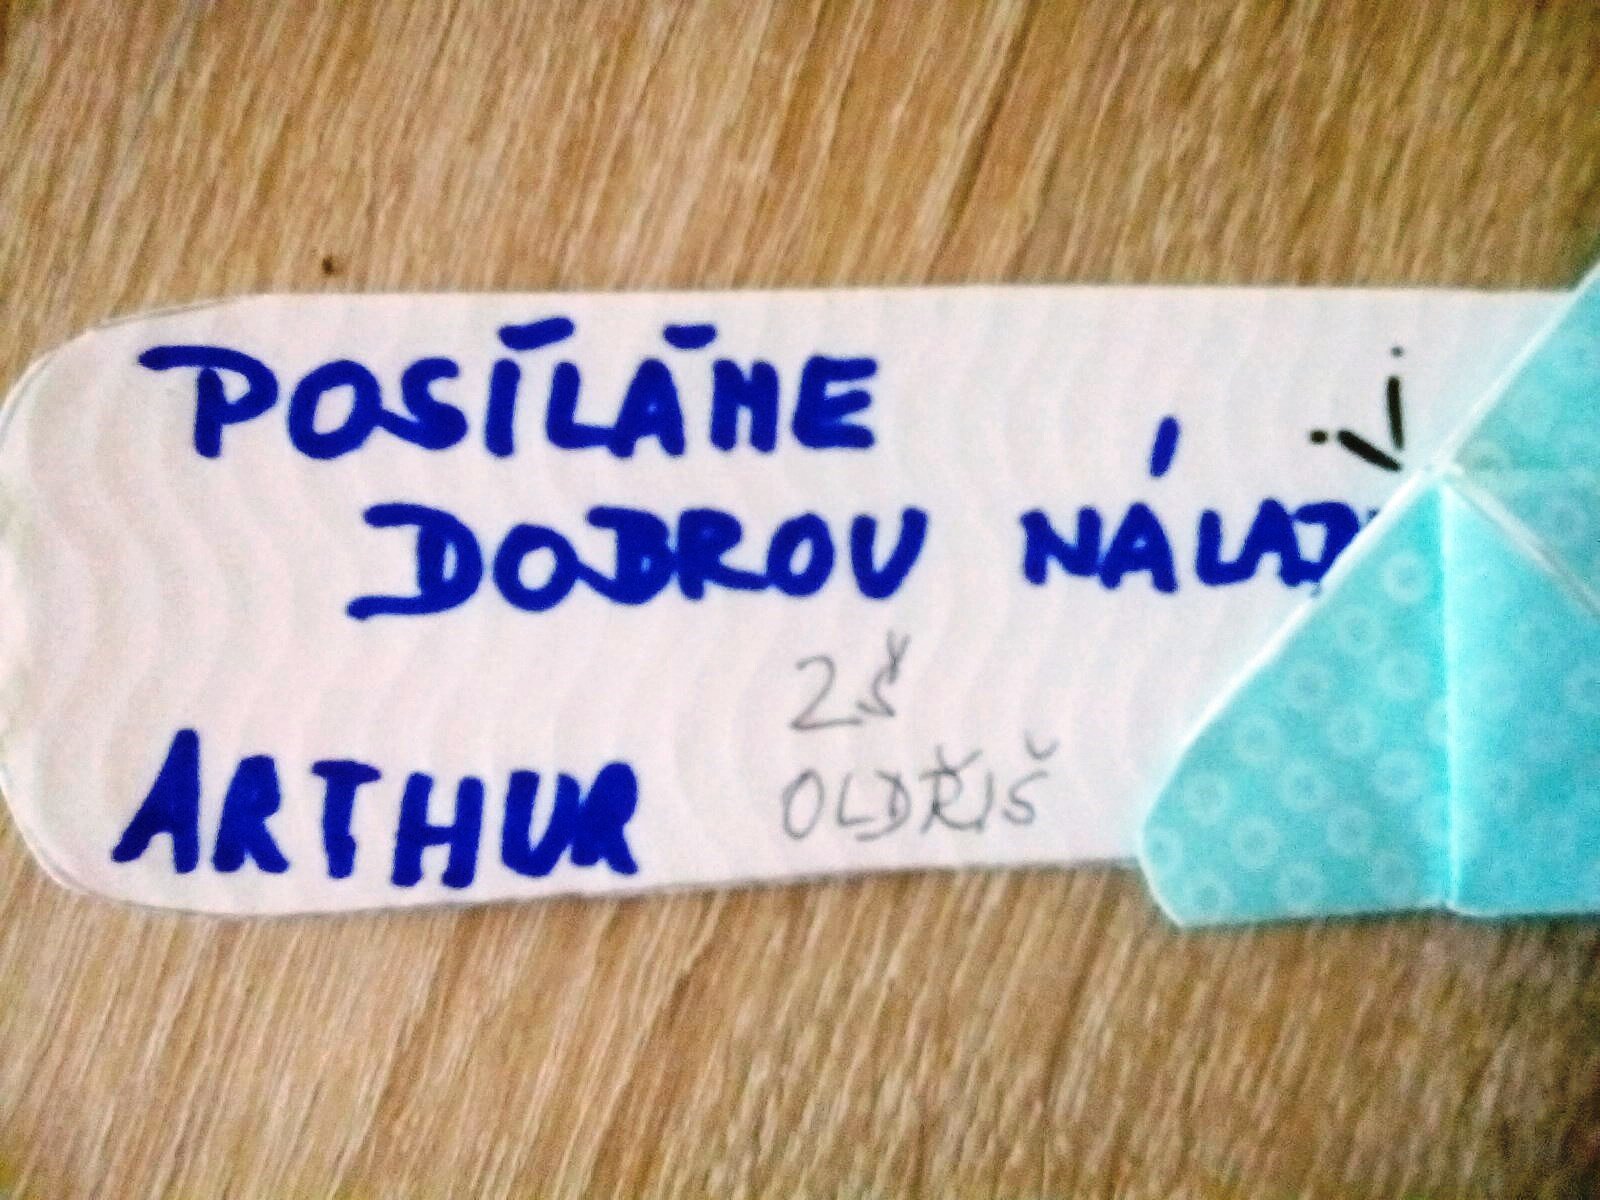 POSÍLÁME
DOBROU NÁLAD
ZŠ
OLDŘIŠ
ARTHUR